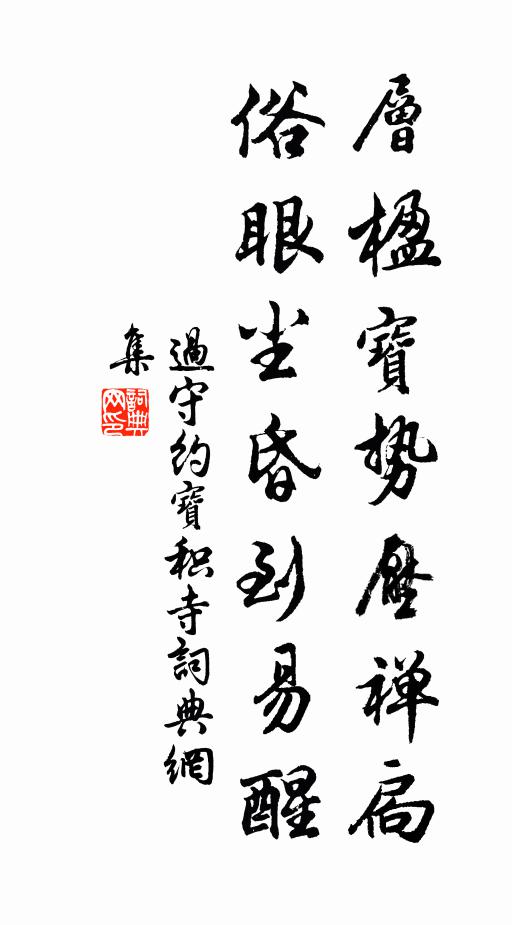 層楹寶势壓禅扃
俗眼尘昏到易醒
過守约寶积寺詞典網
集
詞典网印